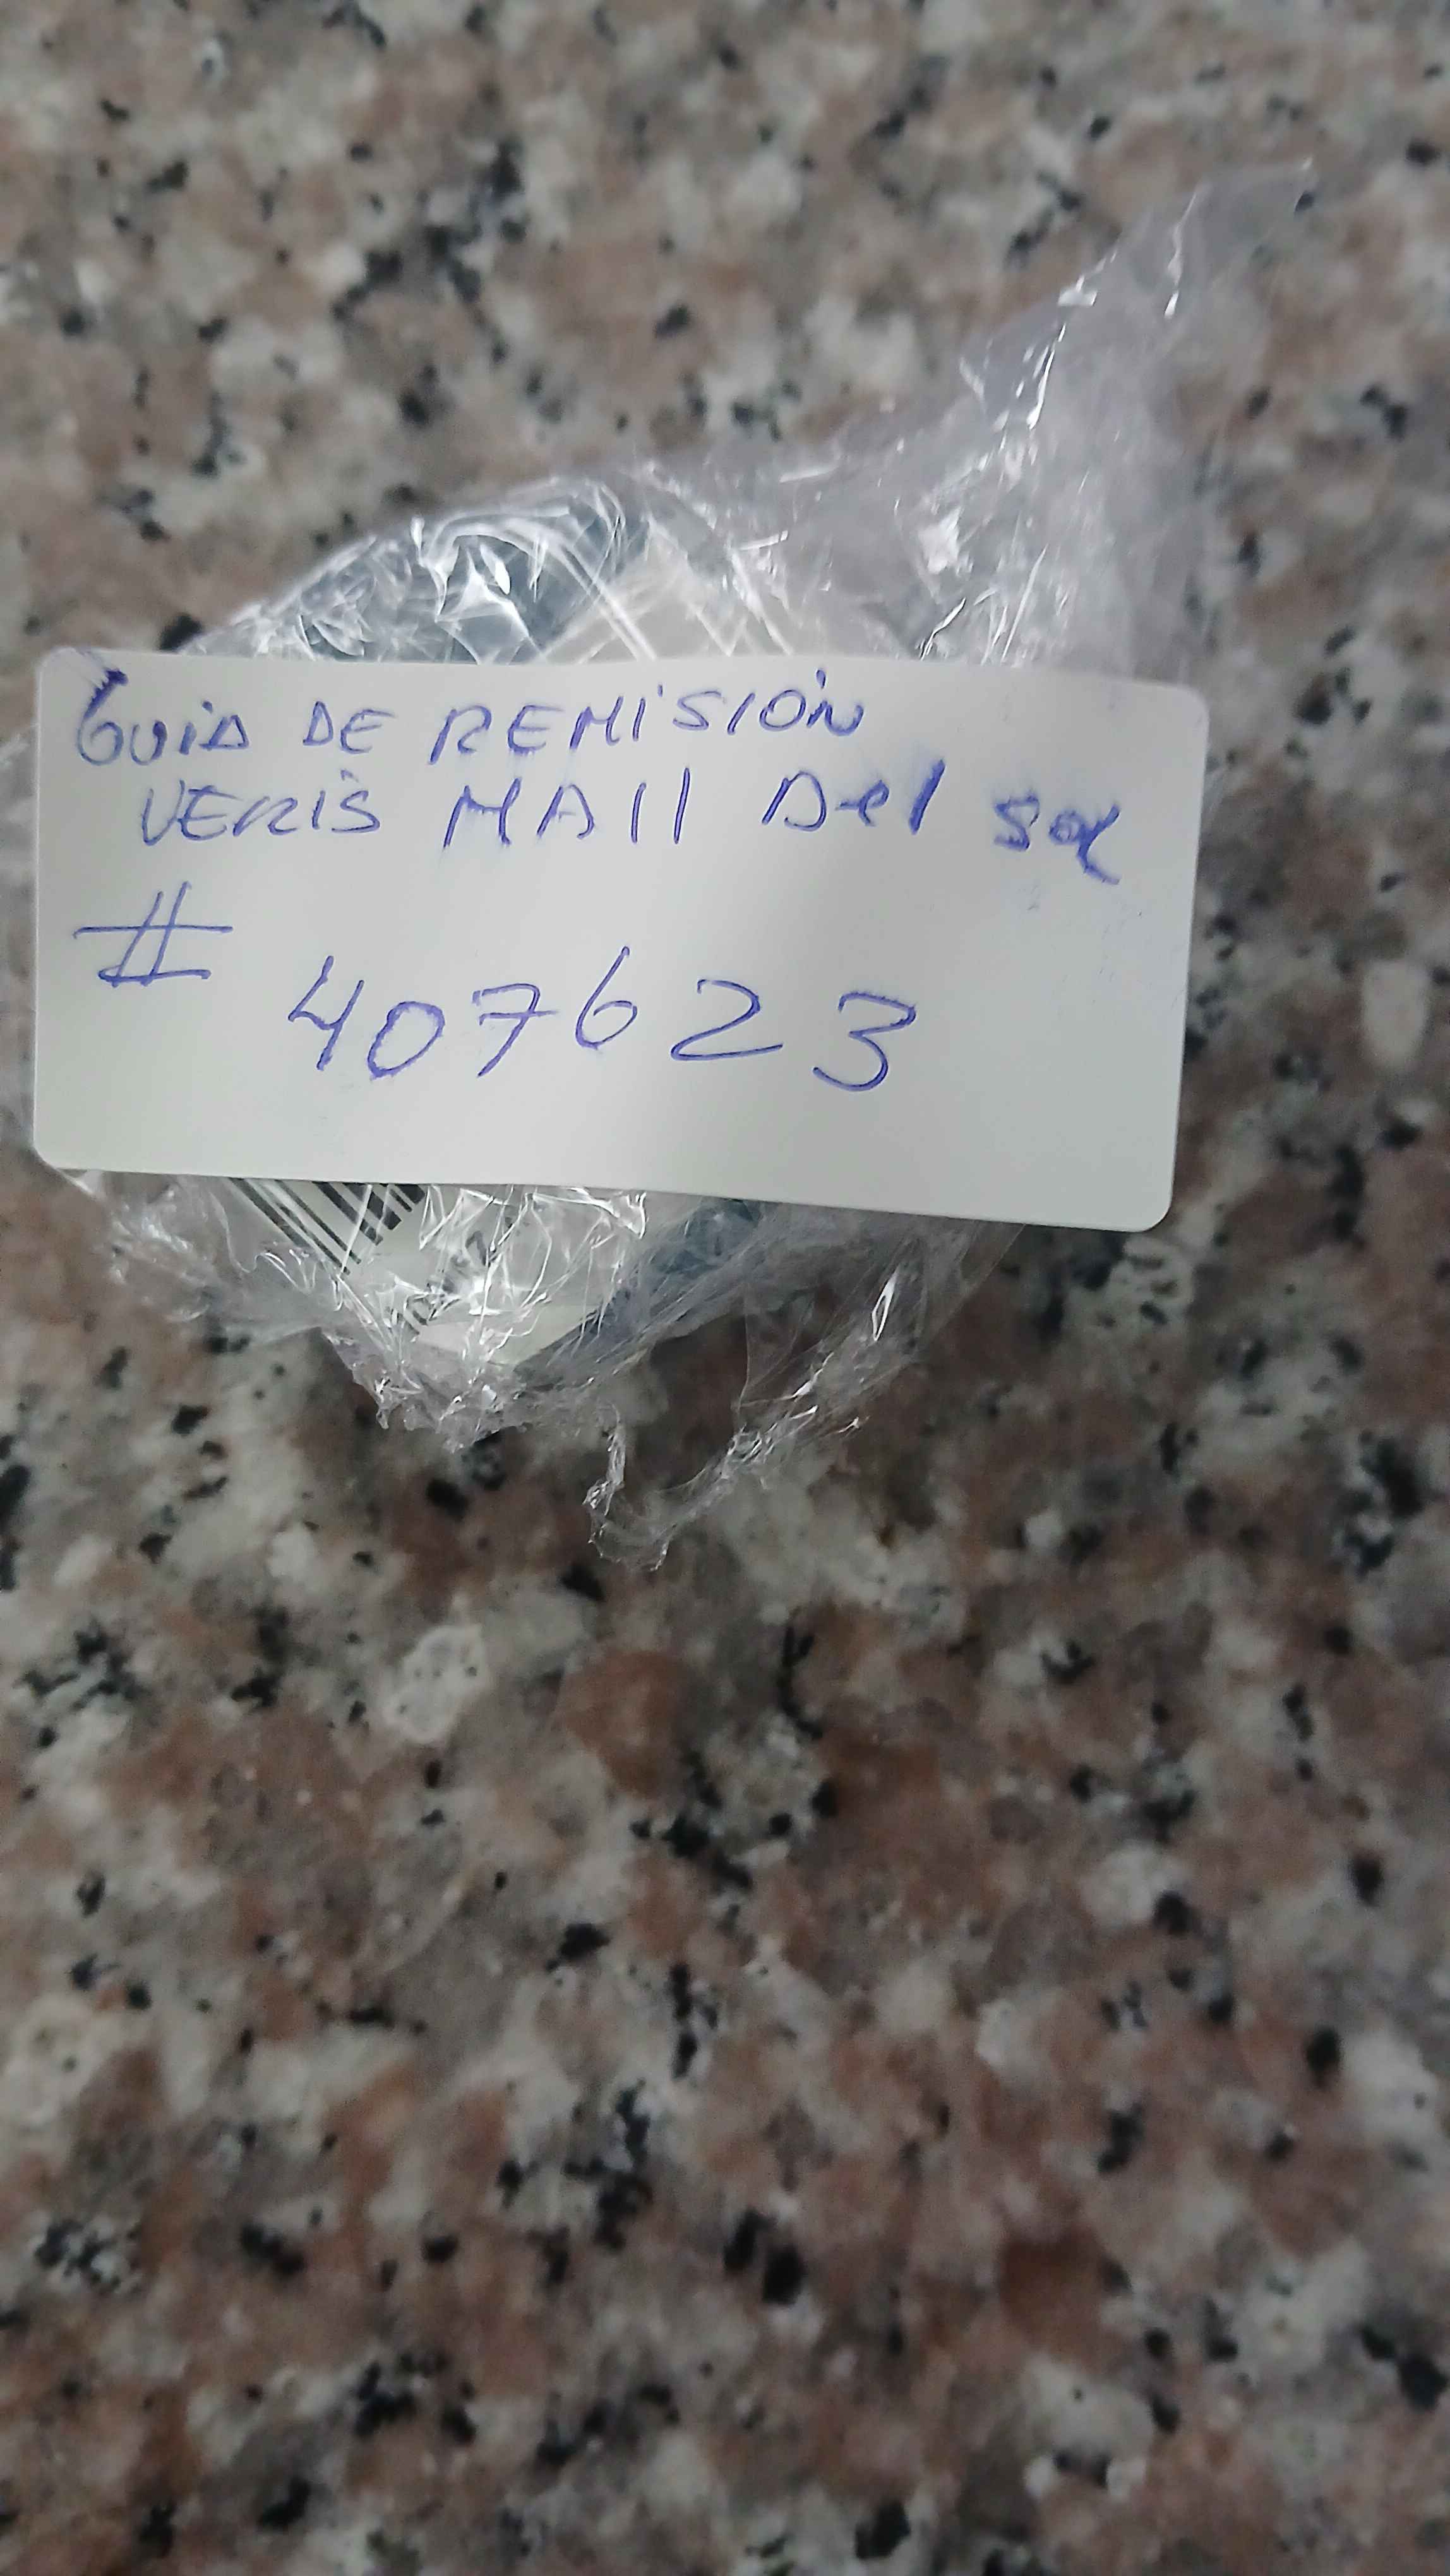 GUIA DE REMISIÓN
VERIS MAll Del Sol
# 407623